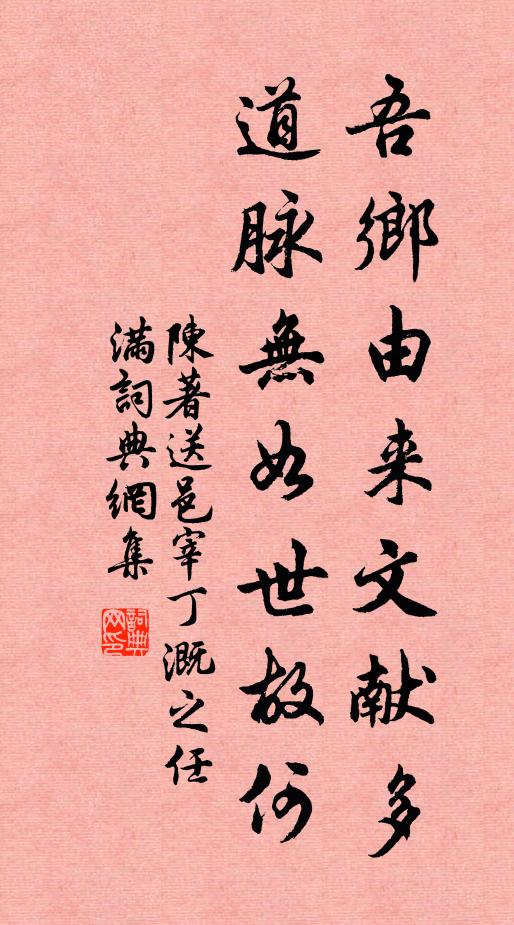 吾鄉由来文献多
道脉無如世故何
陳著送邑宰丁溉之任
滿詞典網集
詞典网印